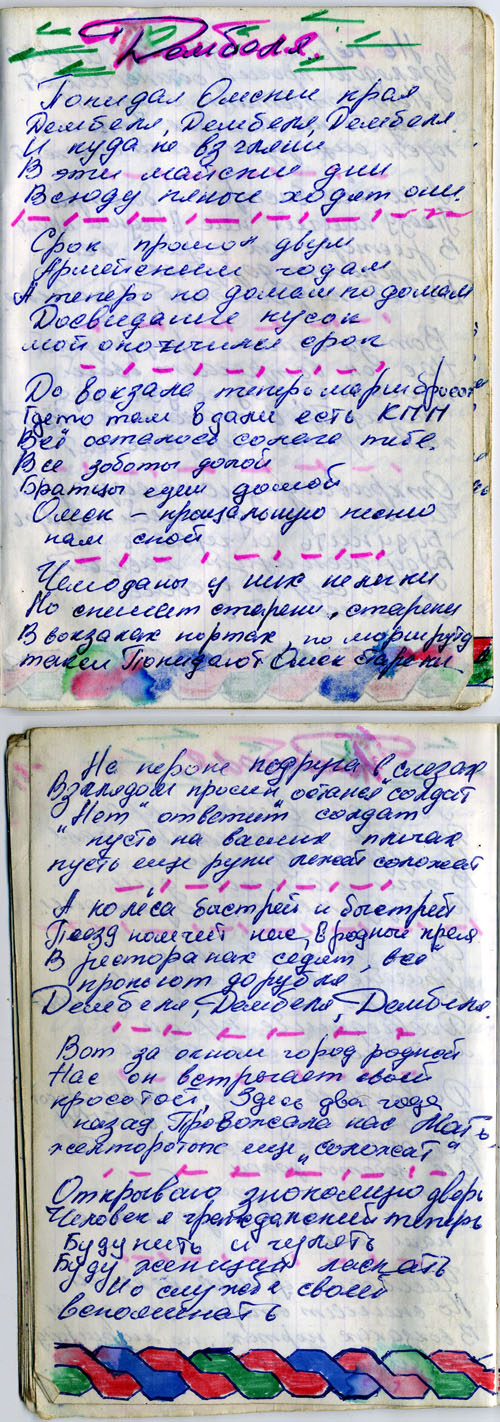 Дембеля.
Покидая Омские края
Дембеля, Дембеля, Дембеля.
И куда не взгляни
В эти майские дни
Всюду пьяные ходят они.
Срок прошол двум
Армейским годам
А теперь по домам по домам
Досвидание кусок
мой окончился срок
До вокзала теперь марш бросок
Где то там вдали есть КПП
Всё осталось салага тебе.
Все заботы долой
Братцы едем домой
Омск – прощальную песню
нам спой
Чемоданы у них нелегки
Но спешат старики, старики
В вокзалах портах, по маршруту
такси Покидают Омск старики
На пероне подруга в слезах
Взглядом просит останся солдат
"Нет" ответит солдат
пусть на ваших плечах
пусть еще руки лежат салажат
А колёса быстрей и быстрей
Поезд помчит нас, в родные края
В ресторанах сидят, всё
пропьют до рубля
Дембеля, Дембеля, Дембеля.
Вот за окном город родной
Нас он встречает своей
красотой, Здесь два года
назад Провожала нас Мать,
желторотых ещё "салажат"
Открываю знакомую дверь
Человек я гражданский теперь
Буду пить и гулять
Буду женщин ласкать
Но службе своей
вспоминать